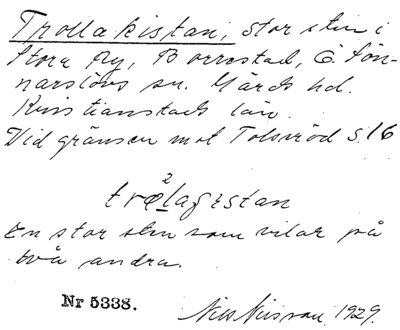 Trollakistan, stor sten i
Stora By, Borrestad, Ö. Sön-
narslövs sn. Gärds hd.
Kristianstads län.
Vid gränsen mot Tolseröd S. 16
trålagistan
En stor sten som vilar på
två andra.
Nr 5338.
Nils Nilsson 1929.